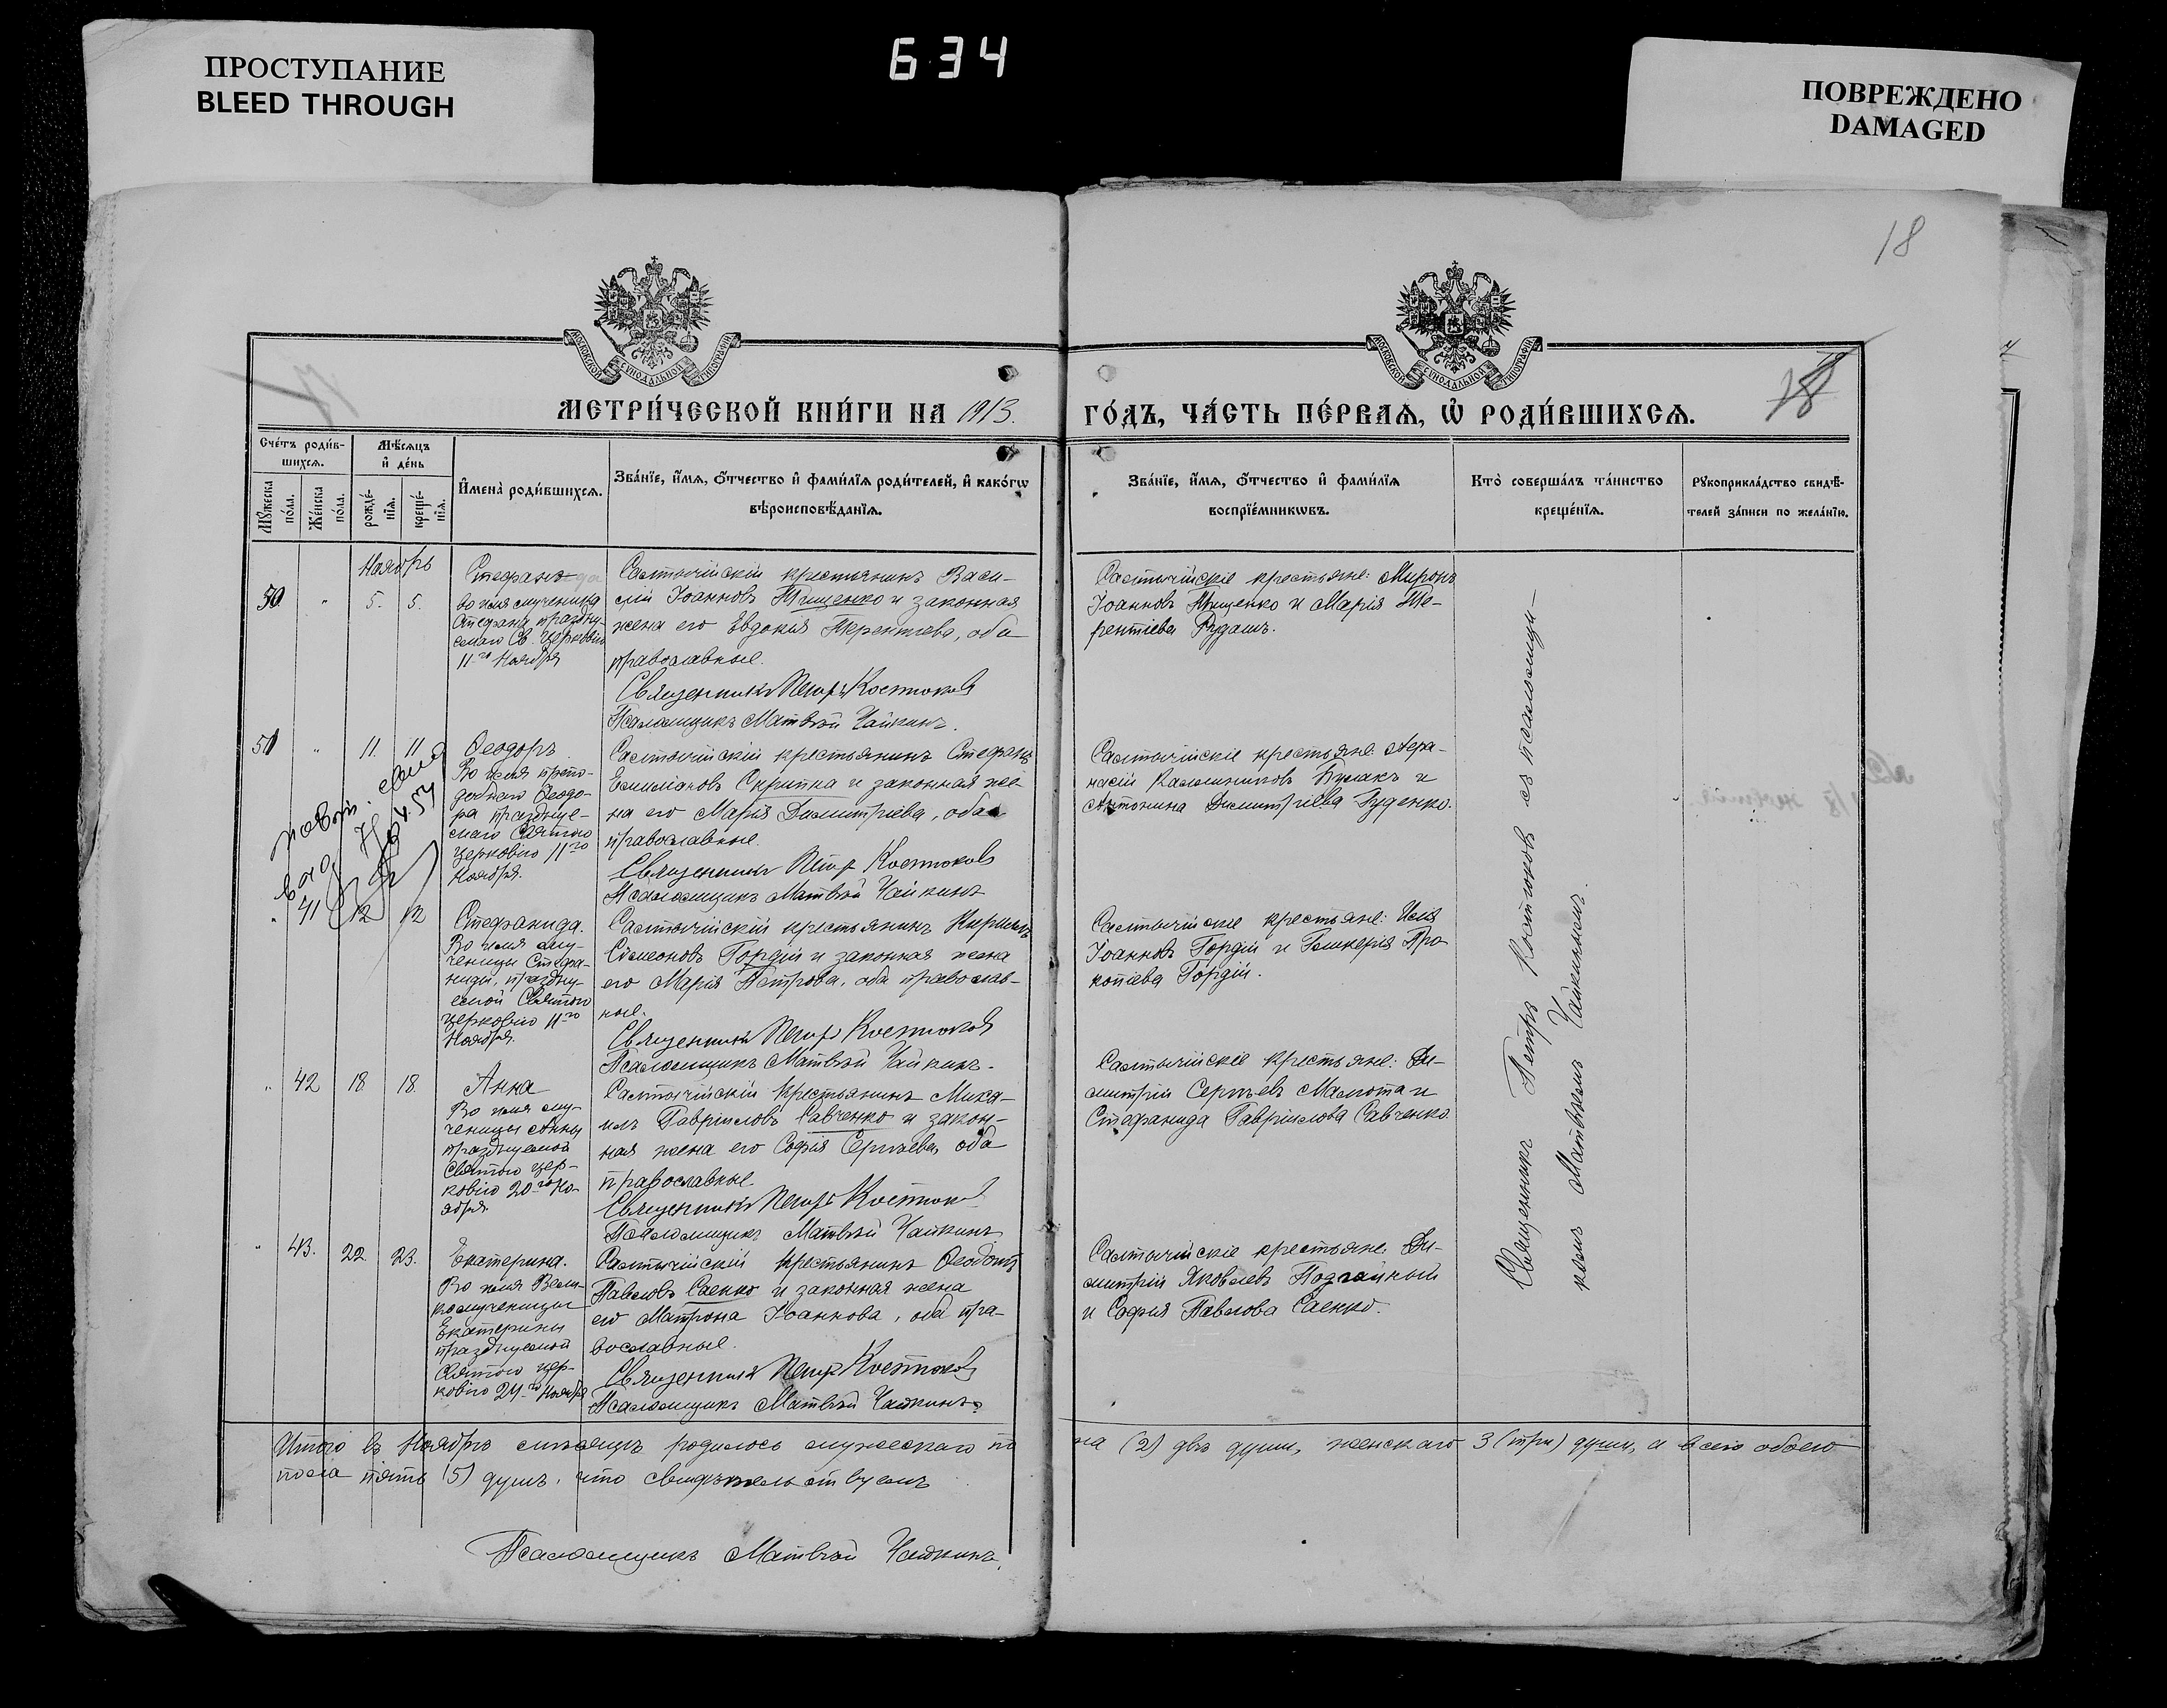 ПРОСТУПАНИЕ
BLEED THROUGH
634
ПОВРЕЖДЕНО
DAMAGED
18
МОСКОВСКОЙ СѴНОДАЛЬНОЙ ТИПОГРАФІИ
МОСКОВСКОЙ СѴНОДАЛЬНОЙ ТИПОГРАФІИ
МЕТРИ́ЧЕСКОЙ КНИ́ГИ НА 1913.
ГО́ДЪ, ЧА́СТЬ ПЕ́РВАѦ, Ѡ҆ РОДИ́ВШИХСѦ.
18
Сче́тъ роди́в-
шихсѧ.
Мѣ́сѧцъ
и҆ де́нь
Мꙋ́жеска
по́ла.
Же́нска
по́ла.
рожде́-
нїѧ.
креще́-
нїѧ.
И҆мена̀ роди́вшихсѧ.
Зва́нїе, и҆́мѧ, ѻ҆́тчество и҆ фами́лїѧ роди́телей, и҆ како́гѡ
вѣроисповѣ́данїѧ.
Зва́нїе, и҆́мѧ, ѻ҆́тчество и҆ фами́лїѧ
воспрїе́мникѡвъ.
Кто̀ соверша́лъ та́инство
креще́нїѧ.
Рꙋкоприкла́дство свидѣ́-
телей за́писи по жела́нїю.
Ноябрь
50 " 5. 5.
Стефанъ
во имя мученика
Стефана праздну-
емаго Св. Церковію
11го Ноября
Салтычійскій крестьянинъ Васи-
лій Іоанновъ Тищенко и законная
жена его Евдокия Терентіева, оба
православные.
Священникъ Петръ Костюковъ
Псаломщикъ Матвѣй Чайкинъ.
Салтычійскіе крестьяне: Миронъ
Іоанновъ Тищенко и Марія Те-
рентіева Рудашъ.
51 " 11. 11
Ѳеодоръ
Во имя препо-
добнаго Ѳеодо-
ра празднуе-
маго Святою
церковію 11го
Ноября.
Салтычійскій крестьянинъ Стефанъ
Емиліановъ Скрипка и законная же-
на его Марія Димитріева, оба
православные.
Священникъ Петръ Костюковъ
Псаломщикъ Матвѣй Чайкинъ
Салтычійскіе крестьяне: Афа-
насій Каллиниковъ и
Антонина Димитріева Гуденко.
" 41 12 12
Стефанида.
Во имя му-
ченицы Стефа-
ниды, праздну-
емой Святою
церковію 11го
Ноября.
Салтычійскій крестьянинъ Кириллъ
Симеоновъ Гордій и законная жена
его Марія Петрова, оба православ-
ные.
Священникъ Петръ Костюковъ
Псаломщикъ Матвѣй Чайкинъ.
Салтычійскіе крестьяне: Илія
Іоанновъ Гордій и Гликерія Про
копіева Гордій.
" 42 18 18
Анна
Во имя му-
ченицы Анны
празднуемой
Святою цер-
ковію 20го Но-
ября.
Салтычійскій крестьянинъ Миха-
илъ Гавріиловъ Савченко и закон-
ная жена его Софія Сергѣева, оба
православные.
Священникъ Петръ Костюковъ
Псаломщикъ Матвѣй Чайкинъ
Салтычійскіе крестьяне: Ди-
митрій Сергѣевъ Малюта и
Стефанида Гавріилова Савченко.
" 43. 22 23.
Екатерина.
Во имя Вели-
комученицы
Екатерины
празднуемой
Святою цер-
ковію 24го Ноября
Салтычійскій крестьянинъ Ѳеодотъ
Павловъ Саенко и законная жена
его Матрона Іоаннова, оба пра-
вославные.
Священникъ Петръ Костюковъ
Псаломщикъ Матвѣй Чайкинъ.
Салтычійскіе крестьяне: Ди-
митрій Яковлевъ Подгайный
и Софія Павлова Саенко.
Священникъ Петръ Костюковъ съ псаломщи-
комъ Матвѣемъ Чайкинымъ.
Итого въ Ноябрѣ мѣсяцѣ родилось мужескаго по
ла (2) двѣ души, женскаго 3 (три) души, а всего обоего
пола пять (5) душъ, что свидѣтельствуемъ
Псаломщикъ Матвѣй Чайкинъ.